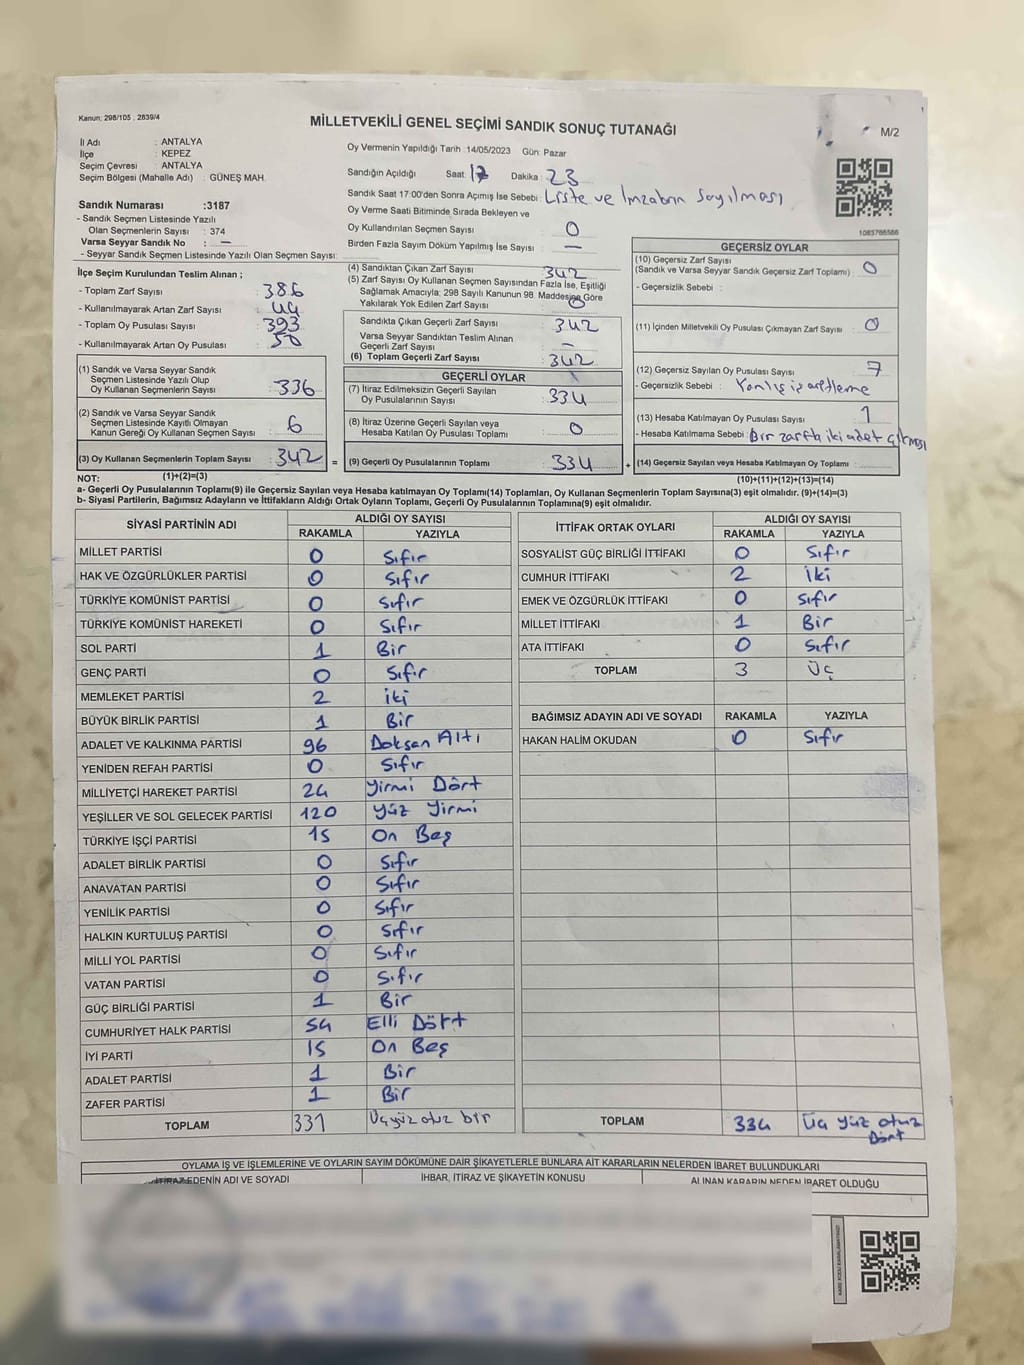 Kanun: 298/105 , 2839/4
MİLLETVEKİLİ GENEL SEÇİMİ SANDIK SONUÇ TUTANAĞI
M/2
İl Adı : ANTALYA
İlçe : KEPEZ
Seçim Çevresi : ANTALYA
Seçim Bölgesi (Mahalle Adı) : GÜNEŞ MAH.
Sandık Numarası :3187
- Sandık Seçmen Listesinde Yazılı
Olan Seçmenlerin Sayısı : 374
Varsa Seyyar Sandık No : —
- Seyyar Sandık Seçmen Listesinde Yazılı Olan Seçmen Sayısı:
Oy Vermenin Yapıldığı Tarih :14/05/2023 Gün: Pazar
Sandığın Açıldığı Saat: 17 Dakika: 23
Sandık Saat 17:00'den Sonra Açımış İse Sebebi: Liste ve İmzaların Sayılması
Oy Verme Saati Bitiminde Sırada Bekleyen ve
Oy Kullandırılan Seçmen Sayısı : 0
Birden Fazla Sayım Döküm Yapılmış İse Sayısı : —
1085766586
İlçe Seçim Kurulundan Teslim Alınan ;
- Toplam Zarf Sayısı : 386
- Kullanılmayarak Artan Zarf Sayısı : 44
- Toplam Oy Pusulası Sayısı : 393
- Kullanılmayarak Artan Oy Pusulası : 50
(1) Sandık ve Varsa Seyyar Sandık
Seçmen Listesinde Yazılı Olup
Oy Kullanan Seçmenlerin Sayısı : 336
(2) Sandık ve Varsa Seyyar Sandık
Seçmen Listesinde Kayıtlı Olmayan
Kanun Gereği Oy Kullanan Seçmen Sayısı : 6
(3) Oy Kullanan Seçmenlerin Toplam Sayısı : 342
(4) Sandıktan Çıkan Zarf Sayısı : 342
(5) Zarf Sayısı Oy Kullanan Seçmen Sayısından Fazla İse, Eşitliği
Sağlamak Amacıyla, 298 Sayılı Kanunun 98. Maddesine Göre
Yakılarak Yok Edilen Zarf Sayısı : 0
Sandıkta Çıkan Geçerli Zarf Sayısı : 342
Varsa Seyyar Sandıktan Teslim Alınan
Geçerli Zarf Sayısı : —
(6) Toplam Geçerli Zarf Sayısı : 342
GEÇERLİ OYLAR
(7) İtiraz Edilmeksizin Geçerli Sayılan
Oy Pusulalarının Sayısı : 334
(8) İtiraz Üzerine Geçerli Sayılan veya
Hesaba Katılan Oy Pusulası Toplamı : 0
= (9) Geçerli Oy Pusulalarının Toplamı : 334
GEÇERSİZ OYLAR
(10) Geçersiz Zarf Sayısı
(Sandık ve Varsa Seyyar Sandık Geçersiz Zarf Toplamı) : 0
- Geçersizlik Sebebi :
(11) İçinden Milletvekili Oy Pusulası Çıkmayan Zarf Sayısı : 0
(12) Geçersiz Sayılan Oy Pusulası Sayısı : 7
- Geçersizlik Sebebi : Yanlış işaretleme
(13) Hesaba Katılmayan Oy Pusulası Sayısı : 1
- Hesaba Katılmama Sebebi : Bir zarfta iki adet çıkması
+ (14) Geçersiz Sayılan veya Hesaba Katılmayan Oy Toplamı :
NOT: (1)+(2)=(3) (10)+(11)+(12)+(13)=(14)
a- Geçerli Oy Pusulalarının Toplamı(9) ile Geçersiz Sayılan veya Hesaba katılmayan Oy Toplamı(14) Toplamları, Oy Kullanan Seçmenlerin Toplam Sayısına(3) eşit olmalıdır. (9)+(14)=(3)
b- Siyasi Partilerin, Bağımsız Adayların ve İttifakların Aldığı Ortak Oyların Toplamı, Geçerli Oy Pusulalarının Toplamına(9) eşit olmalıdır.
SİYASİ PARTİNİN ADI ALDIĞI OY SAYISI
RAKAMLA YAZIYLA
MİLLET PARTİSİ 0 Sıfır
HAK VE ÖZGÜRLÜKLER PARTİSİ 0 Sıfır
TÜRKİYE KOMÜNİST PARTİSİ 0 Sıfır
TÜRKİYE KOMÜNİST HAREKETİ 0 Sıfır
SOL PARTİ 1 Bir
GENÇ PARTİ 0 Sıfır
MEMLEKET PARTİSİ 2 iki
BÜYÜK BİRLİK PARTİSİ 1 Bir
ADALET VE KALKINMA PARTİSİ 96 Doksan Altı
YENİDEN REFAH PARTİSİ 0 Sıfır
MİLLİYETÇİ HAREKET PARTİSİ 24 Yirmi Dört
YEŞİLLER VE SOL GELECEK PARTİSİ 120 Yüz Yirmi
TÜRKİYE İŞÇİ PARTİSİ 15 On Beş
ADALET BİRLİK PARTİSİ 0 Sıfır
ANAVATAN PARTİSİ 0 Sıfır
YENİLİK PARTİSİ 0 Sıfır
HALKIN KURTULUŞ PARTİSİ 0 Sıfır
MİLLİ YOL PARTİSİ 0 Sıfır
VATAN PARTİSİ 0 Sıfır
GÜÇ BİRLİĞİ PARTİSİ 1 Bir
CUMHURİYET HALK PARTİSİ 54 Elli Dört
İYİ PARTİ 15 On Beş
ADALET PARTİSİ 1 Bir
ZAFER PARTİSİ 1 Bir
TOPLAM 331 Üçyüz otuz bir
İTTİFAK ORTAK OYLARI ALDIĞI OY SAYISI
RAKAMLA YAZIYLA
SOSYALİST GÜÇ BİRLİĞİ İTTİFAKI 0 Sıfır
CUMHUR İTTİFAKI 2 İki
EMEK VE ÖZGÜRLÜK İTTİFAKI 0 Sıfır
MİLLET İTTİFAKI 1 Bir
ATA İTTİFAKI 0 Sıfır
TOPLAM 3 Üç
BAĞIMSIZ ADAYIN ADI VE SOYADI RAKAMLA YAZIYLA
HAKAN HALİM OKUDAN 0 Sıfır
TOPLAM 334 Üç yüz otuz
Dört
OYLAMA İŞ VE İŞLEMLERİNE VE OYLARIN SAYIM DÖKÜMÜNE DAİR ŞİKAYETLERLE BUNLARA AİT KARARLARIN NELERDEN İBARET BULUNDUKLARI
İTİRAZ EDENİN ADI VE SOYADI İHBAR, İTİRAZ VE ŞİKAYETİN KONUSU ALINAN KARARIN NEDEN İBARET OLDUĞU